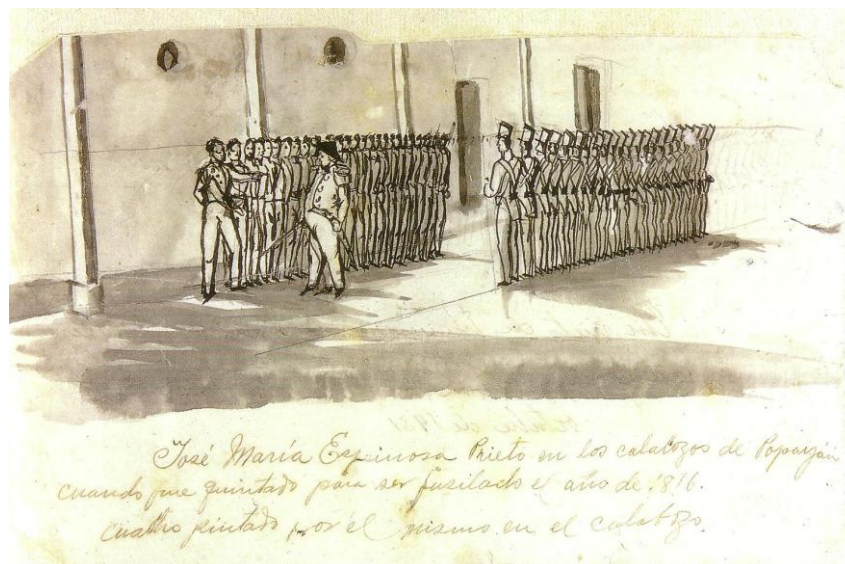 octubre de 1931
José María Espinosa Prieto en los calabozos de Popayán
cuando fue quintado para ser fusilado el año de 1816.
cuadro pintado por él mismo en el calabozo